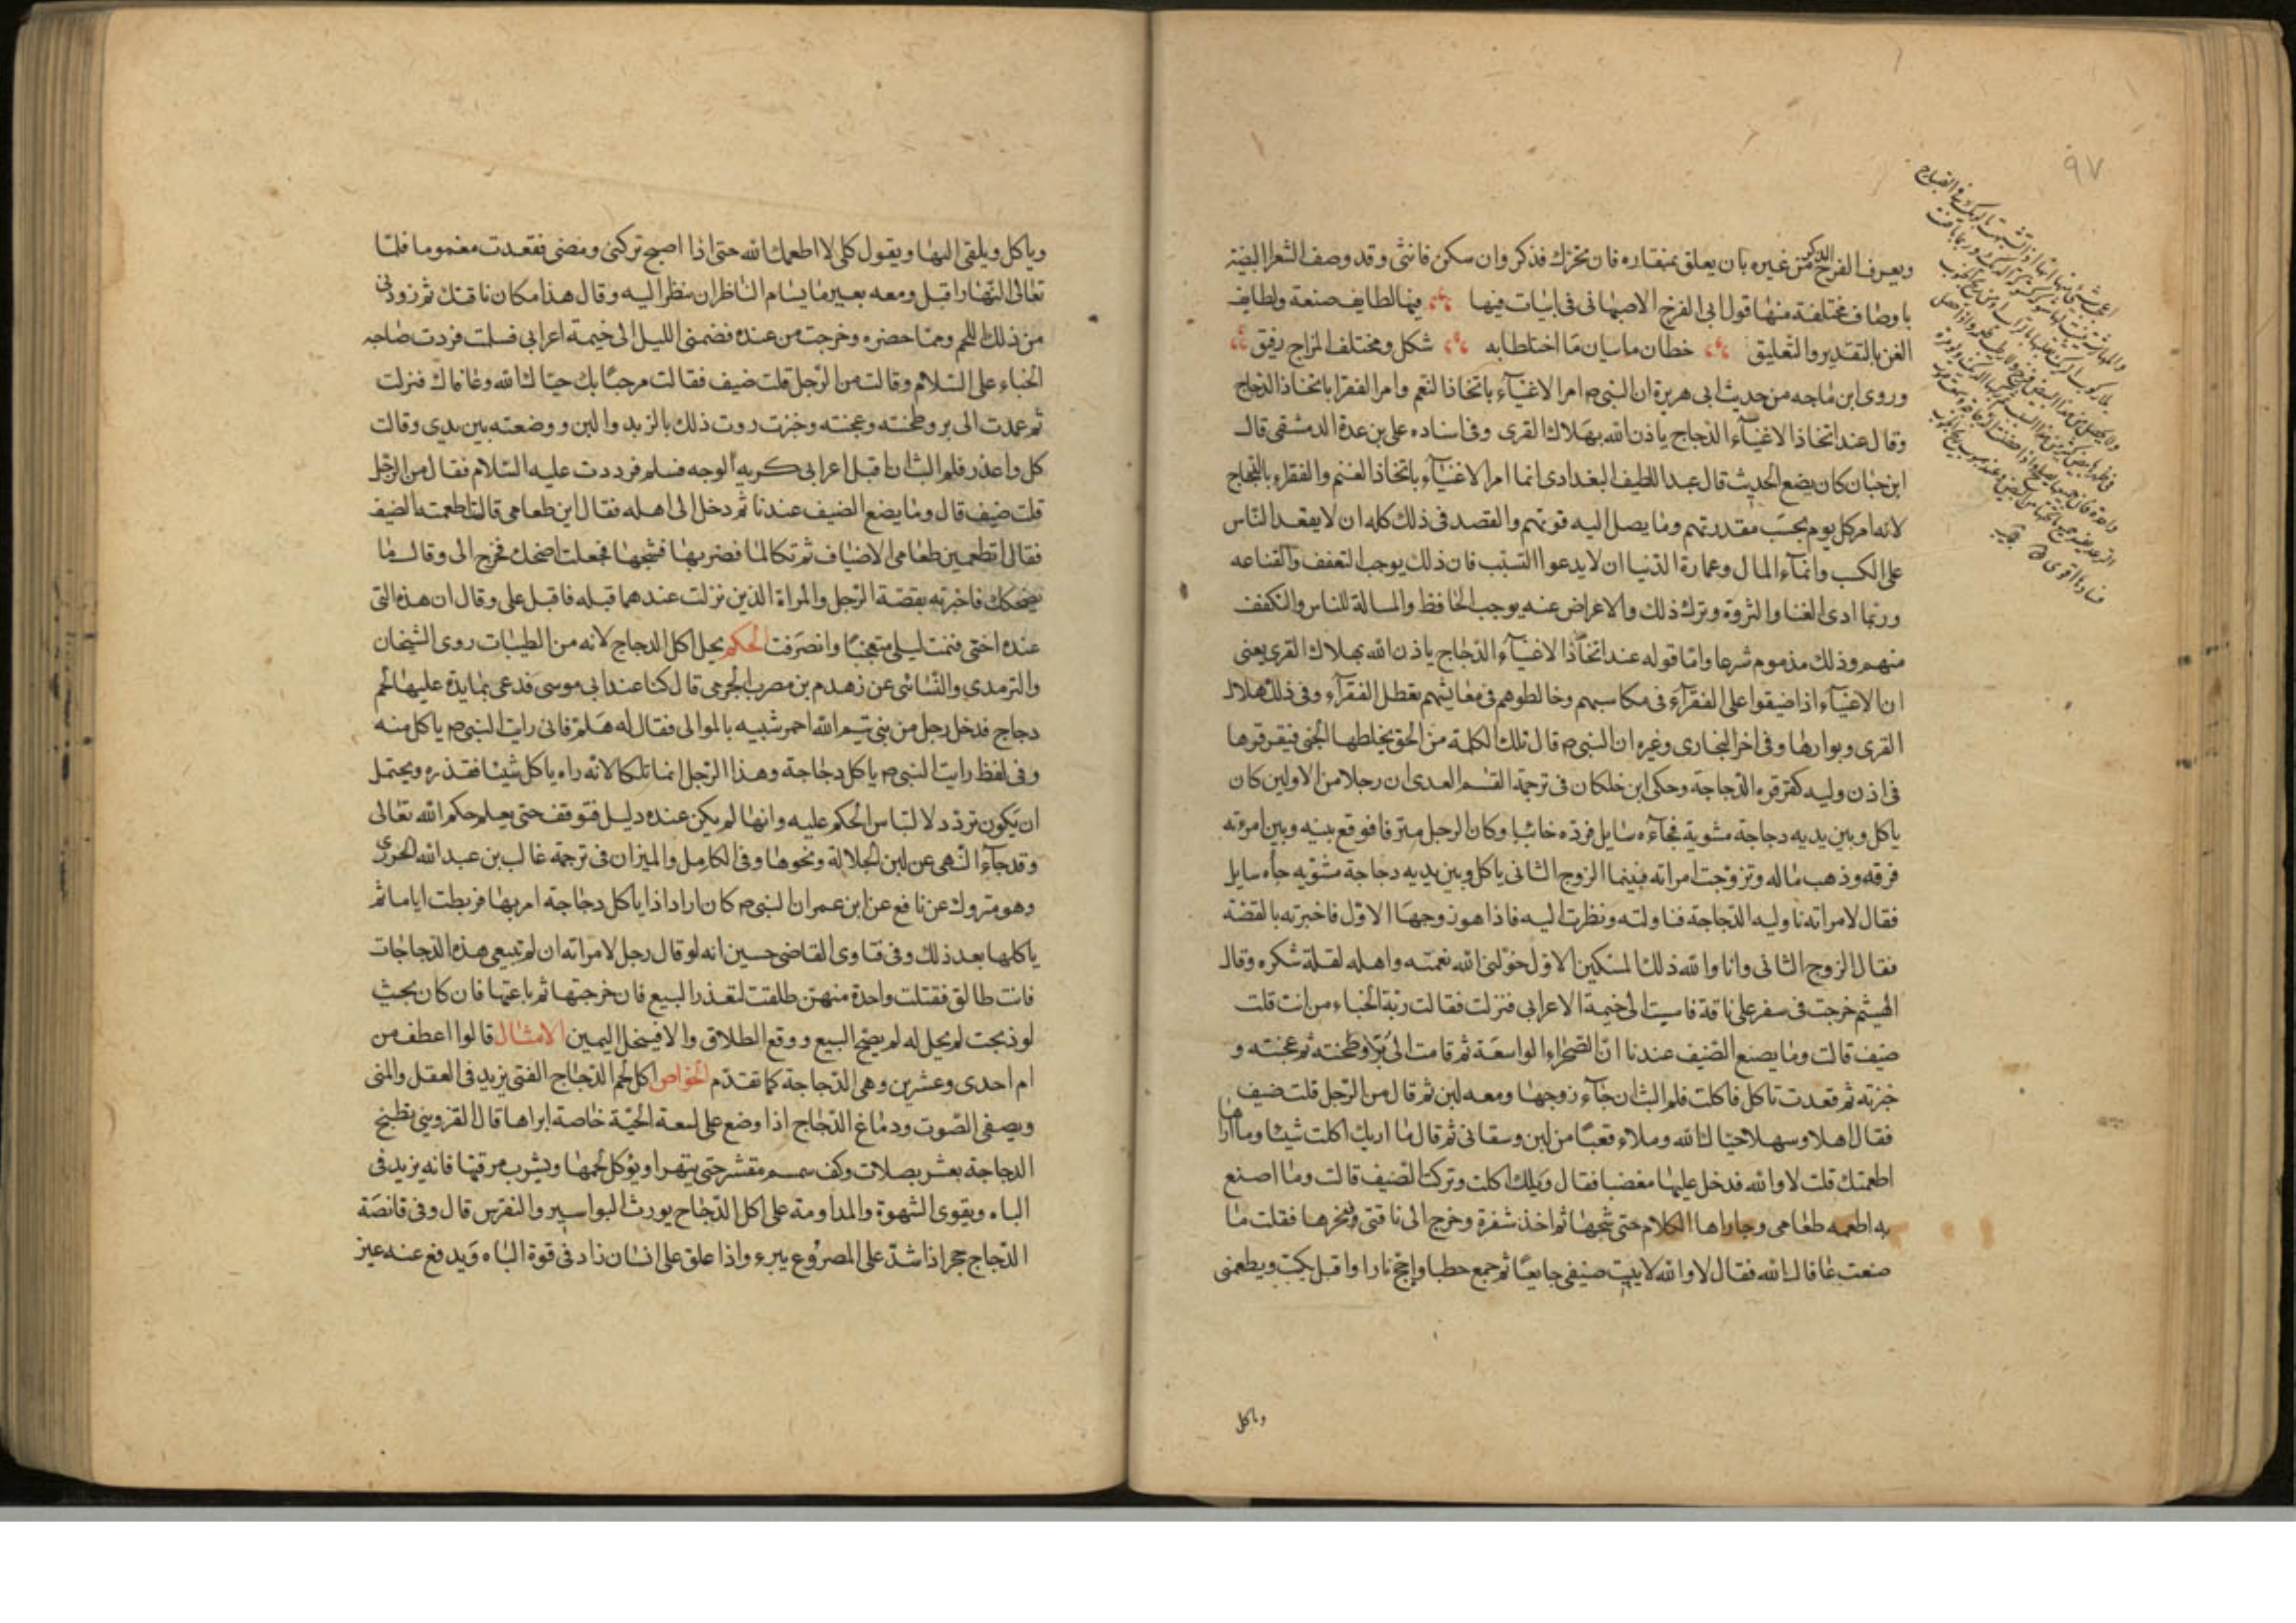 ٩٧
ويعرف الفرخ الذكر من غيره بان يعلق بمنقاره فان تحرك فذكر وان سكن فانثى وقد وصف الشعرا البيضة
باوصاف مختلفة منها قول ابى الفرج الاصبهانى فى ابيات فيها فيها لطايف صنعة ولطايف
الفن بالتقدير والتعليق خطان ماييان ما اختلطا به شكل ومختلف المزاج رفيق
وروى ابن ماجه من حديث ابى هريرة ان النبى م امر الاغنيآء باتخاذ النعم وامر الفقرا باتخاذ الدجاج
وقال عند اتخاذ الاغنيآء الدجاج ياذن الله بهلاك القرى وفى اسناده على بن عدة الدمشقى قال
ابن حبان كان يضع الحديث قال عبد اللطيف البغدادى انما امر الاغنيآء باتخاذ الغنم والفقراء بالدجاج
لانه امر كل يوم بحسب مقدرتهم وما يصل اليه قوتهم والقصد فى ذلك كله ان لا يقعد الناس
على الكسب وانمآء المال وعمارة الدنيا ان لا يدعوا التسبب فان ذلك يوجب التعفف والقناعه
وربما ادى الغنا والثروة وترك ذلك والاعراض عنه يوجب الحافظ والمسالة للناس والتكفف
منهم وذلك مذموم شرعا واما قوله عند اتخاذ الاغنيآء الدجاج ياذن الله بهلاك القرى يعنى
ان الاغنيآء اذا ضيقوا على الفقرآء فى مكاسبهم وخالطوهم فى معايشهم بعطل الفقرآء وفى ذلك هلاك
القرى وبوارها وفى اخر البخارى وغيره ان النبى م قال تلك الكلمة من الحق يخلطها الجنى فيقرقرها
فى اذن وليه كقرقره الدجاجة وحكى ابن خلكان فى ترجمة القسم العدى ان رجلا من الاولين كان
ياكل وبين يديه دجاجة مشوية فجآءه سايل فرده خائبا وكان الرجل مترفا فوقع بينه وبين امرته
فرقه وذهب ماله وتزوجت امراته فبينما الزوج الثانى ياكل وبين يديه دجاجة مشويه جآه سايل
فقال لامراته ناوليه الدجاجة فناولته ونظرت اليه فاذا هو زوجها الاول فاخبرته بالقصة
فقال الزوج الثانى وانا والله ذلك المسكين الاول خولنى الله نعمته واهله لقلة شكره وقال
الهيثم خرجت فى سفر على ناقة فامسيت الى خيمة الاعرابى فنزلت فقالت ربة الخباء من انت قلت
ضيف قالت وما يصنع الضيف عندنا ان الصحراء الواسعة ثم قامت الى بر وطحنته ثم عجنته و
خبزته ثم قعدت تاكل فاكلت فلم البث ان جآء زوجها ومعه لبن ثم قال من الرجل قلت ضيف
فقال اهلا وسهلا حياك الله وملاء قعبا من لبن وسقانى ثم قال ما اريك اكلت شيئا وما اراها
اطعمتك قلت لا والله فدخل عليها مغضبا فقال ويلك اكلت وتركت الضيف قالت وما اصنع
به اطعمه طعامى وجاراها الكلام حتى شجها ثم اخذ شفرة وخرج الى ناقتى ونحرها فقلت ما
صنعت عافاك الله فقال لا والله لا يبيت ضيفى جايعا ثم جمع حطبا واجج نارا واقبل يكبب ويطعمنى
وياكل
وياكل ويلقى اليها ويقول كلى لا اطعمك الله حتى اذا اصبح تركنى ومضى فقعدت مغموما فلما
تعالى النهار اقبل ومعه بعير ما يسام الناظر ان ينظر اليه وقال هذا مكان ناقتك ثم زودنى
من ذلك اللحم ومما حضره وخرجت من عنده فضمنى الليل الى خيمة اعرابى فسلمت فردت صاحبه
الخباء على السلام وقالت من الرجل قلت ضيف فقالت مرحبا بك حياك الله وعافاك فنزلت
ثم عمدت الى بر وطحنته وعجنته وخبزت روت ذلك بالزبد واللبن ووضعته بين يدى وقالت
كل واعذر فلم البث ان اقبل اعرابى كريه الوجه فسلم فرددت عليه السلام فقال من الرجل
قلت ضيف قال وما يصنع الضيف عندنا ثم دخل الى اهله فقال اين طعامى قالت اطعمته الضيف
فقال اتطعمين طعامى الاضياف ثم تكالما فضربها فشجها فجعلت اضحك فخرج الى وقال ما
يضحكك فاخبرته بقصة الرجل والمراة الذين نزلت عندهما قبله فاقبل على وقال ان هذه التى
عنده اختى فنمت ليلى متعجبا وانصرفت الحكم يحل اكل الدجاج لانه من الطيبات روى الشيخان
والترمدى والنسائى عن زهدم بن مصرب الجرمى قال كنا عند ابى موسى فدعى بمايدة عليها لحم
دجاج فدخل رجل من بنى تيم الله احمر شبيه بالموالى فقال له هلم فانى رايت النبى م ياكل منه
وفى لفظ رايت النبى م ياكل دجاجة وهذا الرجل انما تلكا لانه راه ياكل شيئا فقذره ويحتمل
ان يكون تردد لالتباس الحكم عليه وانها لم يكن عنده دليل فتوقف حتى يعلم حكم الله تعالى
وقد جآء النهى عن لبن الجلالة ونحوها وفى الكامل والميزان فى ترجمة غالب بن عبد الله الجزرى
وهو متروك عن نافع عن ابن عمر ان النبى م كان اراد اذا ياكل دجاجة امر بها فربطت اياما ثم
ياكلها بعد ذلك وفى فتاوى القاضى حسين انه لو قال رجل لامراته ان لم تبيعى هذه الدجاجات
فانت طالق فقتلت واحدة منهن طلقت لتعذر البيع فان خرجتها ثم باعتها فان كان بحيث
لو ذبحت لم يحل له لم يصح البيع ووقع الطلاق والا فينحل اليمين الامثال قالوا اعطف من
ام احدى وعشرين وهى الدجاجة كما تقدم الخواص اكل لحم الدجاج الفتى يزيد فى العقل والمنى
ويصفى الصوت ودماغ الدجاج اذا وضع على لسعة الحية خاصة ابراها قال القزوينى تطبخ
الدجاجة بعشر بصلات وكف سمسم مقشر حتى يتهرا ويؤكل لحمها ويشرب مرقها فانه يزيد فى
الباه ويقوى الشهوة والمداومة على اكل الدجاج يورث البواسير والنقرس قال وفى قانصة
الدجاج حجر اذا شد على المصروع يبرء واذا علق على انسان زاد فى قوة الباه ويدفع عنه عين